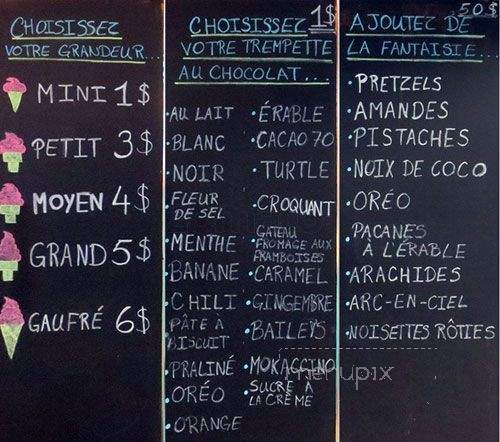 CHOISISSEZ
VOTRE GRANDEUR...
MINI 1$
PETIT 3$
MOYEN 4$
GRAND 5$
GAUFRÉ 6$
CHOISISSEZ 1$
VOTRE TREMPETTE
AU CHOCOLAT...
• AU LAIT
• BLANC
• NOIR
• FLEUR
DE SEL
• MENTHE
• BANANE
• CHILI
• PÂTE À
BISCUIT
• PRALINÉ
• ORÉO
• ORANGE
• ÉRABLE
• CACAO 70
• TURTLE
• CROQUANT
• GATEAU
FROMAGE AUX
FRAMBOISES
• CARAMEL
• GINGEMBRE
• BAILEYS
• MOKACCINO
• SUCRE À
LA CRÈME
50$
AJOUTEZ DE
LA FANTAISIE...
• PRETZELS
• AMANDES
• PISTACHES
• NOIX DE COCO
• ORÉO
• PACANES
À L'ÉRABLE
• ARACHIDES
• ARC-EN-CIEL
• NOISETTES RÔTIES
menupix